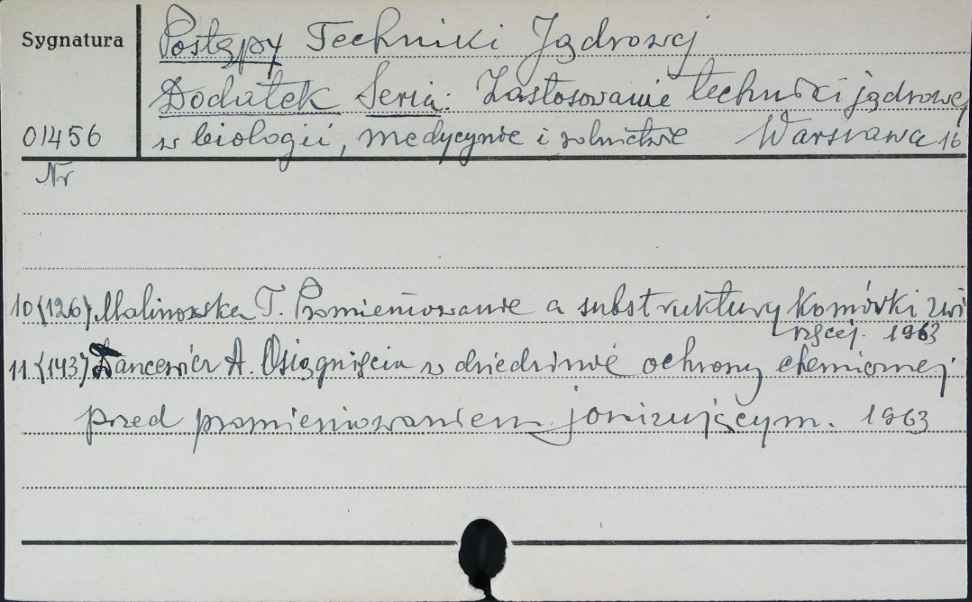 Sygnatura
Postępy Techniki Jądrowej
Dodatek Seria: Zastosowanie techniki jądrowej
01456
w biologii, medycynie i rolnictwie Warszawa 16
Nr
10(126) Malinowska T. Promieniowanie a substruktury komórki zwi
rzęcej. 1963
11(143) Dancewicz A. Osiągnięcia w dziedzinie ochrony chemicznej
przed promieniowaniem jonizującym. 1963